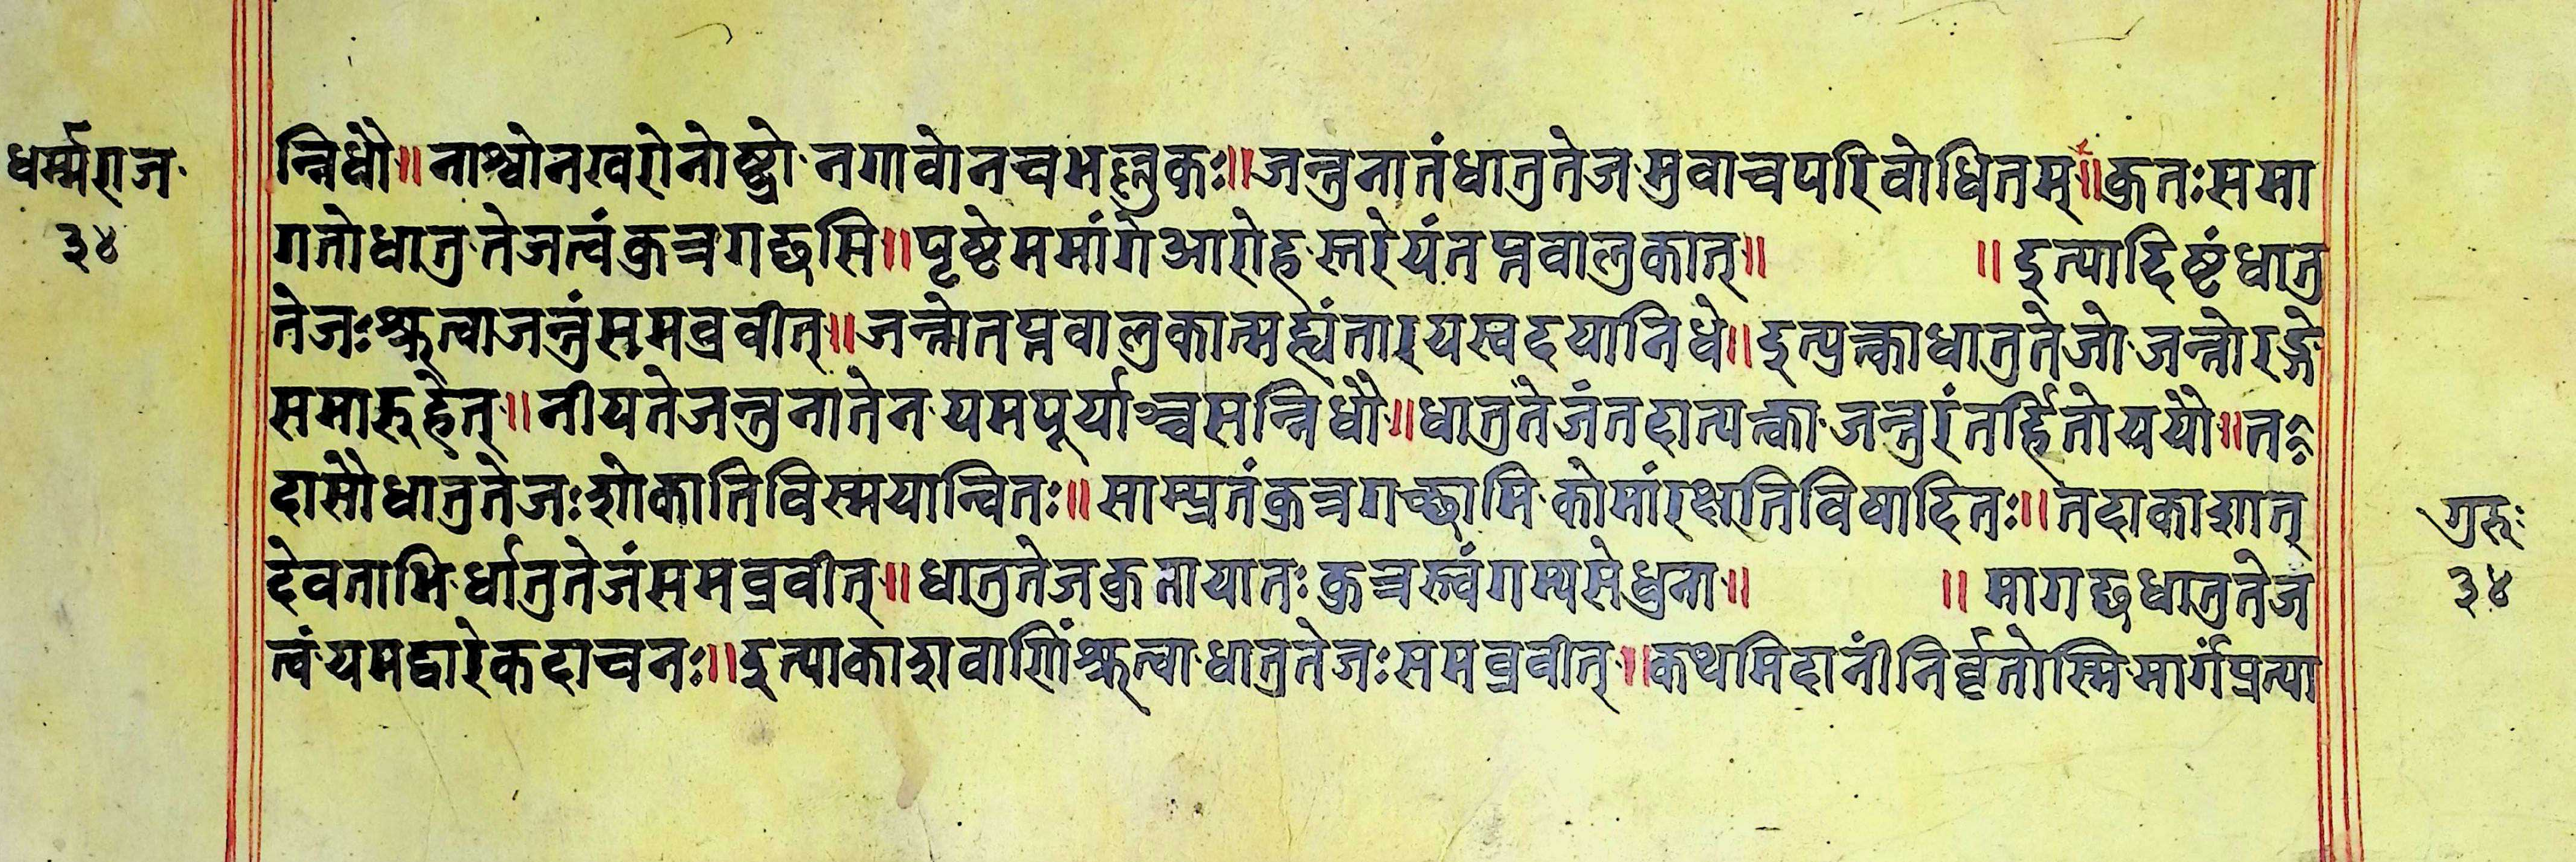 धर्म्मराज
३४
न्निधौ॥ नाश्वोनखरोनोष्ट्रो नगावोनचभल्लुकः॥ जन्तुनातंधातुतेजमुवाचपरिवोधितम्॥ कुतःसमा
गतोधातुतेजत्वंकुत्रगछसि॥ पृष्टेममांगेआरोहस्तरेयंतप्तवालुकात्॥ ॥ इत्यादिष्टंधातु
तेजःश्रुत्वाजन्तुंसमब्रवीत्॥ जन्तोतप्तवालुकात्मह्यंतारयस्वदयानिधे॥ इत्युक्त्वाधातुतेजो जन्तोरङ्गे
समारुहेत्॥ नीयतेजन्तुनातेन यमपूर्याञ्चसन्निधौ॥ धातुतेजंतदात्यक्त्वा जन्तुरंतर्हितोययौ॥ त
दासौधातुतेजःशोकातिविस्मयान्वितः॥ साम्प्रतंकुत्रगच्छामि कोमांरक्षतिविषादितः॥ तदाकाशात्
देवताभि र्धातुतेजंसमब्रवीत्॥ धातुतेजकुतायातः कुत्रस्त्वंगम्यसेधुना॥ ॥ मागछधातुतेज
त्वं यमद्वारेकदाचनः॥ इत्याकाशवाणिंश्रुत्वा धातुतेजःसमब्रवीत्॥ कथमिदानींनिर्वृतोस्मि मार्गंप्रत्या
गुरुः
३४